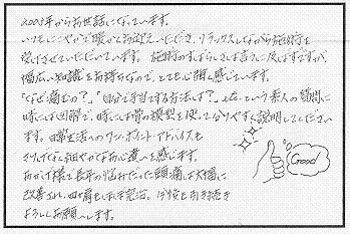 2003年からお世話になっています。
いつもにこやかで暖かくお迎えいただき、リラックスしながら施術を
受けさせていただいています。施術のすばらしさは言うに及ばずですが、
幅広い知識をお持ちなので、とても心強く感じています。
「なぜ痛むの？」「自分で手当てする方法は？」…という素人の質問に
時には図解で、時には骨の模型を使ってわかりやすく説明してくださいます。
日常生活へのワンポイント・アドバイスも
細やかなお心遣いを感じます。
おかげ様で長年の悩みだった頭痛は大幅に
改善され、四十肩もほぼ完治。今後も引き続き
よろしくお願いします。
Good